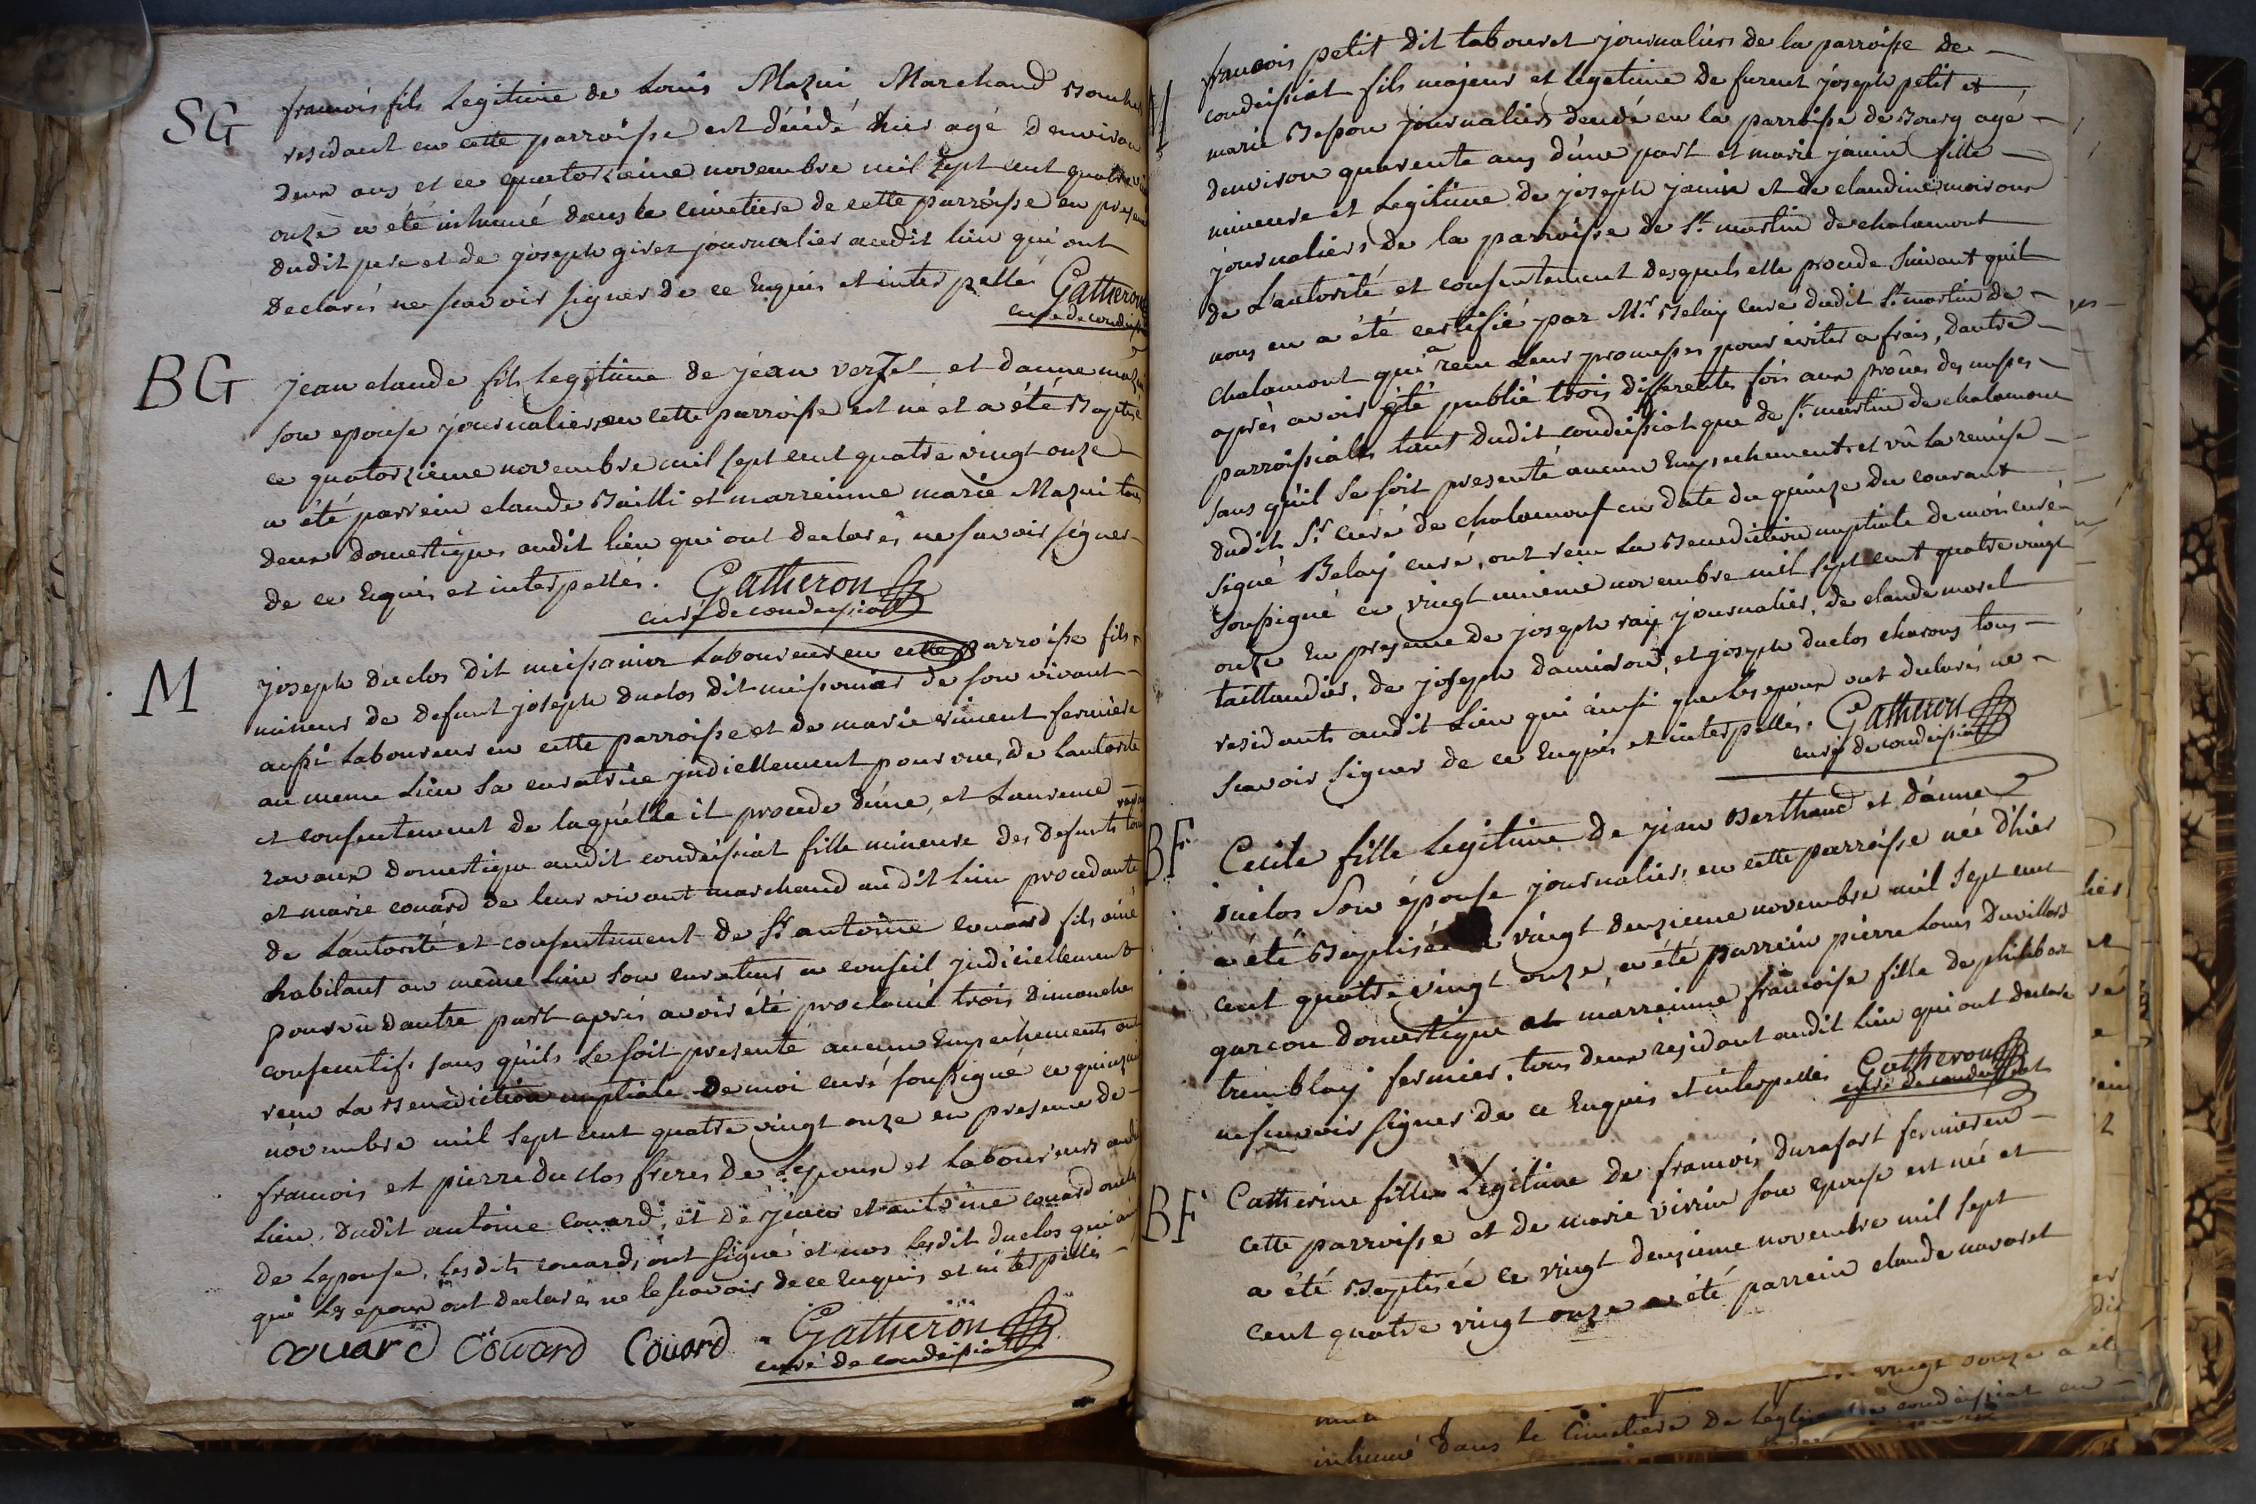 SG
francois fils Legitime de Louis Mazui Marchand
residant en cette parroisse est décédé hier agé denviron
deux ans et ce quatorzieme novembre mil sept cent quatre
onze a été inhumé dans le cimetiere de cette parroisse en
dudit pere et de joseph giret journalier audit lieu qui ont
declarés ne scavoir signer de ce Enquis et interpellé Gatheron
curé de condeissiat
BG
jean claude fils legitime de jean verzet et danne
son epouse journaliers en cette parroisse est né et a été Baptisé
ce quatorzieme novembre mil sept cent quatre vingt onze
a été parrein claude Bailli et marreinne marie Mazui tous
deux domestiques audit lieu qui ont declarés ne savoir signer
de ce Enquis et interpellés. Gatheron
curé de condeissiat
M
joseph duclos dit Laboureur en cette parroisse fils
mineur de defunt joseph duclos dit de son vivant
aussi Laboureur en cette parroisse et de marie fermiere
au meme Lieu sa curatrice judiciellement pourvue, de Lautorité
et consentement de laquélle il procede dune, et Laurence
domestique audit condeissiat fille mineure des defunts
et marie couard de leur vivant marchand audit lieu procedante
de Lautorité et consentement de Sr antoine couard fils ainé
habitant au même Lieu son curateur judiciellement
pourvû dautre part aprés avoir été proclamé trois dimanches
consecutifs sans quils se soit presenté aucuns Empechements ont
recu La Benediction nuptiale de moi curé soussigné ce quinzeme
novembre mil sept cent quatre vingt onze en presence de
francois et pierre duclos freres de Lepoux et Laboureurs audit
Lieu, dudit antoine couard, et de jean et antoine couard oncles
de Lepouse, lesdits couards ont signé et nos lesdit duclos qui ainsi
que les epoux ont declarés ne le scavoir de ce Enquis et interpellés
couard Couard Couard Gatheron
curé de condeissiat
M
francois petit dit tabouret journaliers de la parroisse de
condeissiat fils majeur et legetime de furent joseph petit et
marie journaliers en la parroisse de Bourg agé
denviron quarente ans d'une part et marie janin fille
mineure et Legitime de joseph janin et de claudine
journaliers de la parroisse de St. martin de chalamont
de Lautorité et consentement desquels elle procede suivant quil
nous en a été certifié par Mr. Belay curé dudit St. martin de
chalamont qui a recu Leur promesses pour éviter a frais, dautre
après avoir été publié trois differentes fois aux prônes des messes
parroissiales tant dudit condeissiat que de St. martin de chalamont
sans quil se soit presenté aucun Empechements et vû la remise
dudit Sr. curé de chalamont en date du quinze du courant
signé Belay curé, ont recu La Benediction nuptiale de moi curé
soussigné ce vingt unieme novembre mil sept cent quatre vingt
onze En presence de joseph ray journalier, de claude morel
taillandier, de joseph et joseph duclos charons tous
residants audit Lieu qui ainsi que les epoux ont declarés ne
scavoir signer de ce Enquis et interpellés. Gatheron
curé de condeissiat
BF
Cecile fille Legitime de jean Berthaud et danne
duclos son épouse journaliers en cette parroisse née d'hier
a été Baptisée ce vingt deuzieme novembre mil sept cent
cent quatre vingt onze, a été parrein pierre Louis Duvillard
garcon domestique et marreinne francoise fille de philibert
tremblay fermier, tous deux residant audit lieu qui ont declaré
ne scavoir signer de ce Enquis et interpellés Gatheron
curé de condeissiat
BF
Catherine fille Legitime de francois durafort fermier en
cette parroisse et de marie virin son epouse est née et
a été Baptisée ce vingt deuzieme novembre mil sept
cent quatre vingt onze a été parrein claude navaret
vingt douze a été
inhumé dans le Cimetiere de Leglise de condeissiat en